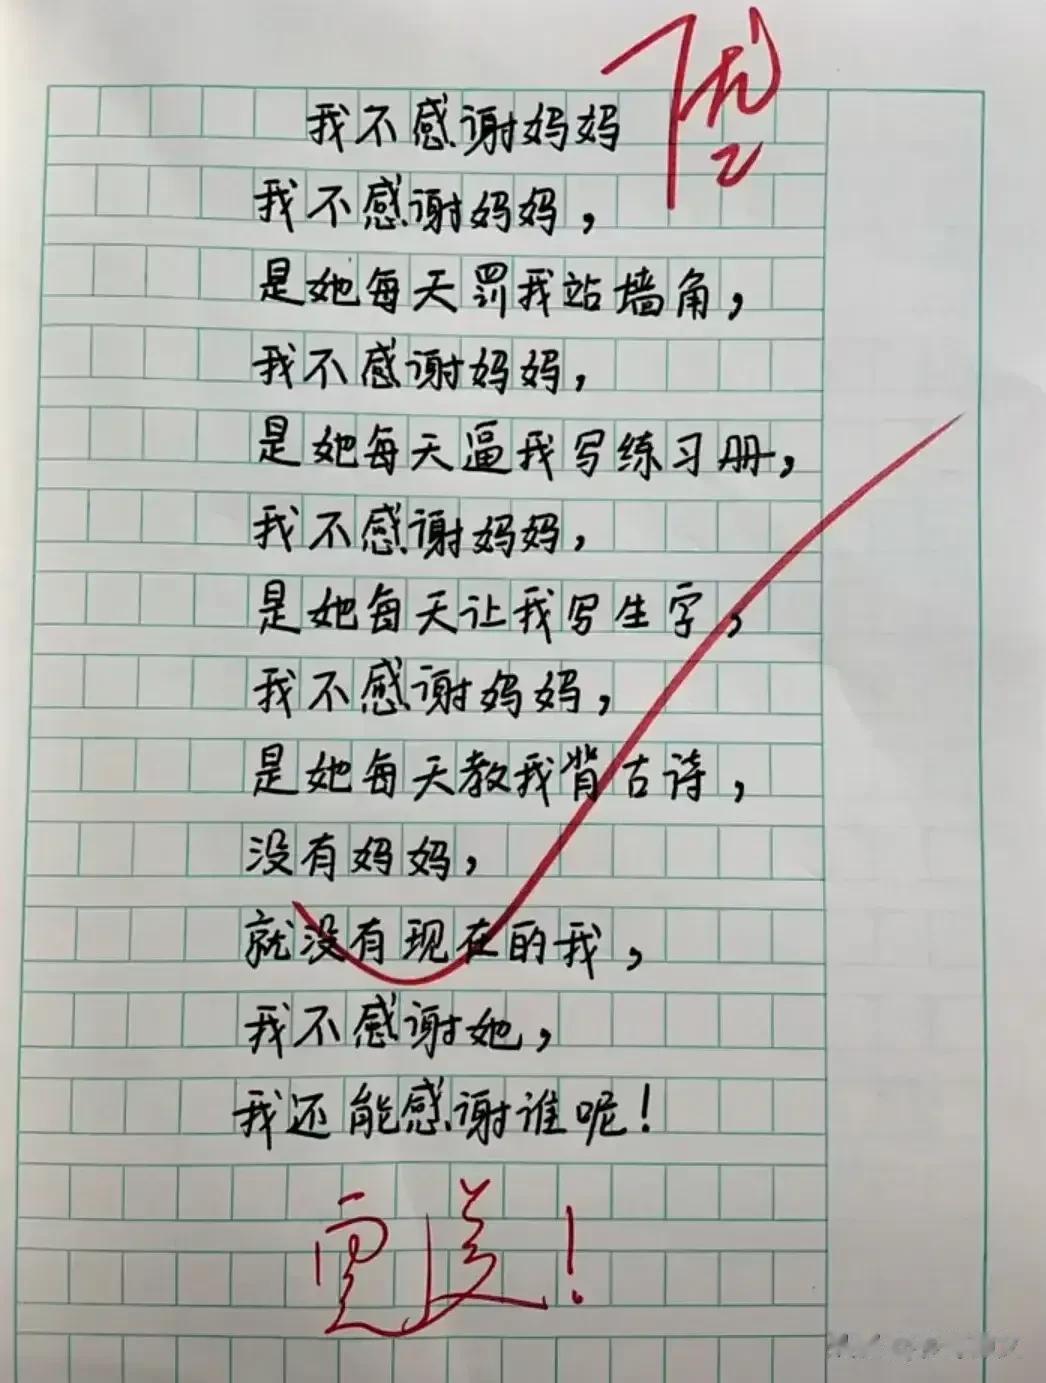 我不感谢妈妈
优
2
我不感谢妈妈，
是她每天罚我站墙角，
我不感谢妈妈，
是她每天逼我写练习册，
我不感谢妈妈，
是她每天让我写生字，
我不感谢妈妈，
是她每天教我背古诗，
没有妈妈，
就没有现在的我，
我不感谢她，
我还能感谢谁呢！